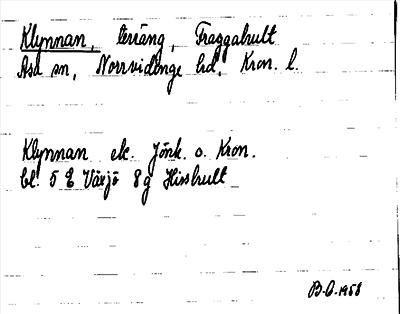 Klynnan, teräng, Fraggahult
Asa sn, Norrvidinge hd, Kron. l.
Klynnan ek. Jönk. o. Kron.
bl. 5 E Växjö 8 g Hisshult
B.O. 1958